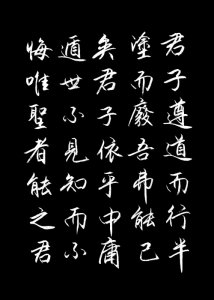 君子遵道而行半
塗而廢吾弗能已
矣君子依乎中庸
遁世不見知而不
悔唯聖者能之君